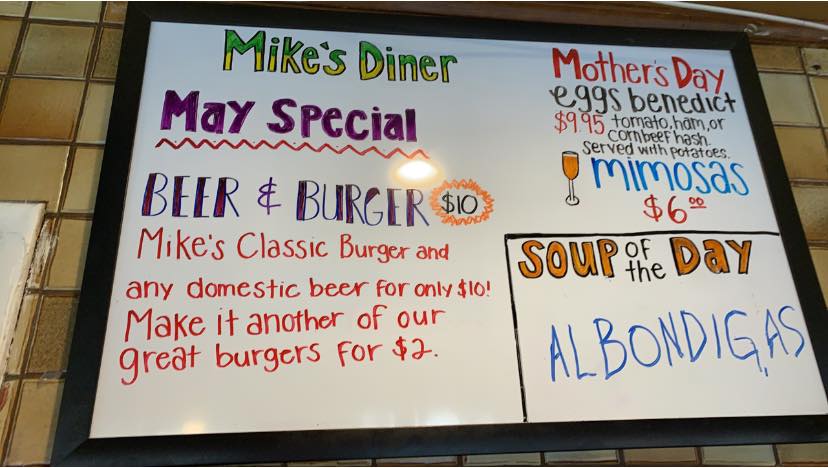 Mike's Diner
May Special
BEER & BURGER $10
Mike's Classic Burger and
any domestic beer for only $10!
Make it another of our
great burgers for $2.
Mother's Day
eggs benedict
$9.95 tomato, ham, or
cornbeef hash.
served with potatoes.
mimosas
$6.00
SOUP OF the Day
ALBONDIGAS